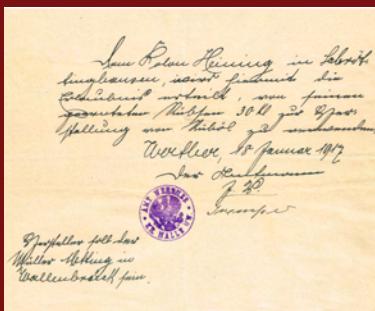 Dem Kolon Heining in Schröt-
tinghausen, wird hiermit die
Erlaubnis erteilt, von seinen
geernteten Rübsen 30 kl zur Her-
stellung von Rüböl zu verwenden.
Werther, 15 Januar 1917
Der Amtmann
J. V.
AMT WERTHER
KR. HALLE i/W
Hersteller soll der
Müller Meking in
Wallenbrück sein.